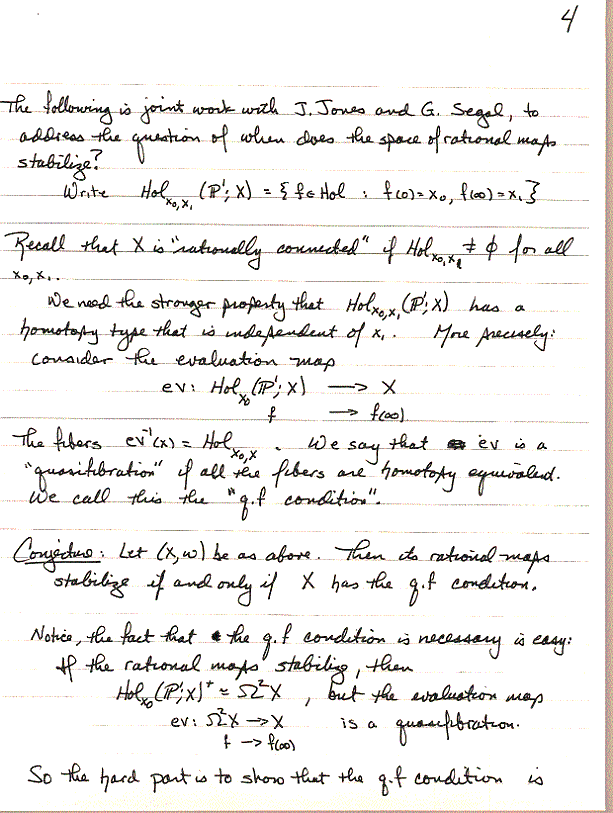 4
The following is joint work with J. Jones and G. Segal, to
address the question of when does the space of rational maps
stabilize?
Write Hol_{x₀,x₁} (P¹; X) = { f ∈ Hol : f(0) = x₀, f(∞) = x₁ }
Recall that X is "rationally connected" if Hol_{x₀,x₁} ≠ φ for all
x₀, x₁.
We need the stronger property that Hol_{x₀,x₁}(P¹; X) has a
homotopy type that is independent of x₁. More precisely:
consider the evaluation map
ev: Hol_{x₀}(P¹; X) → X
f → f(∞)
The fibers ev⁻¹(x) = Hol_{x₀,x}. We say that ev is a
"quasifibration" if all the fibers are homotopy equivalent.
We call this the "q.f condition".
Conjecture: Let (X, ω) be as above. Then its rational maps
stabilize if and only if X has the q.f condition.
Notice, the fact that the q.f condition is necessary is easy:
If the rational maps stabilize, then
Hol_{x₀}(P¹; X)⁺ ≃ Ω²X, but the evaluation map
ev: Ω²X → X is a quasifibration.
f → f(∞)
So the hard part is to show that the q.f condition is